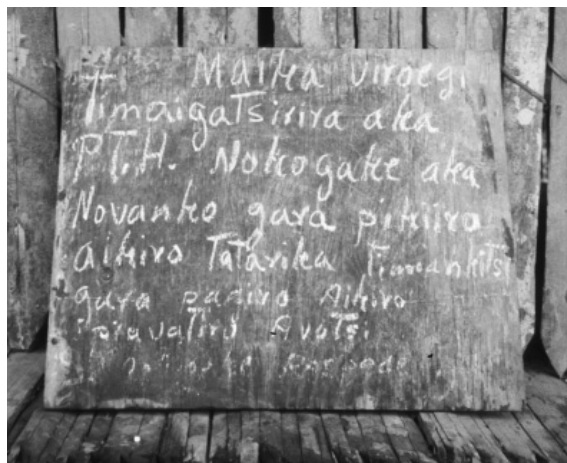 Maika viroegi
Timaigatsirira aka
P.T.H. Nokogake aka
Novanko gara pikiiro
aikiro Tatarika Timankitsi
gara paniro Aikiro
Avotsi